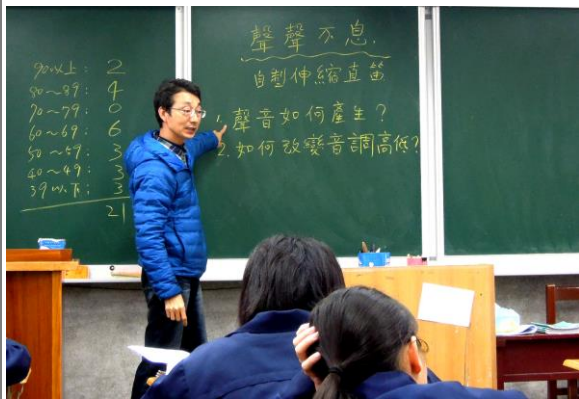 90以上: 2
80~89: 4
70~79: 0
60~69: 6
50~59: 3
40~49: 3
39以下: 3
21
聲聲不息.
自製伸縮直笛
1. 聲音如何產生?
2. 如何改變音調高低?